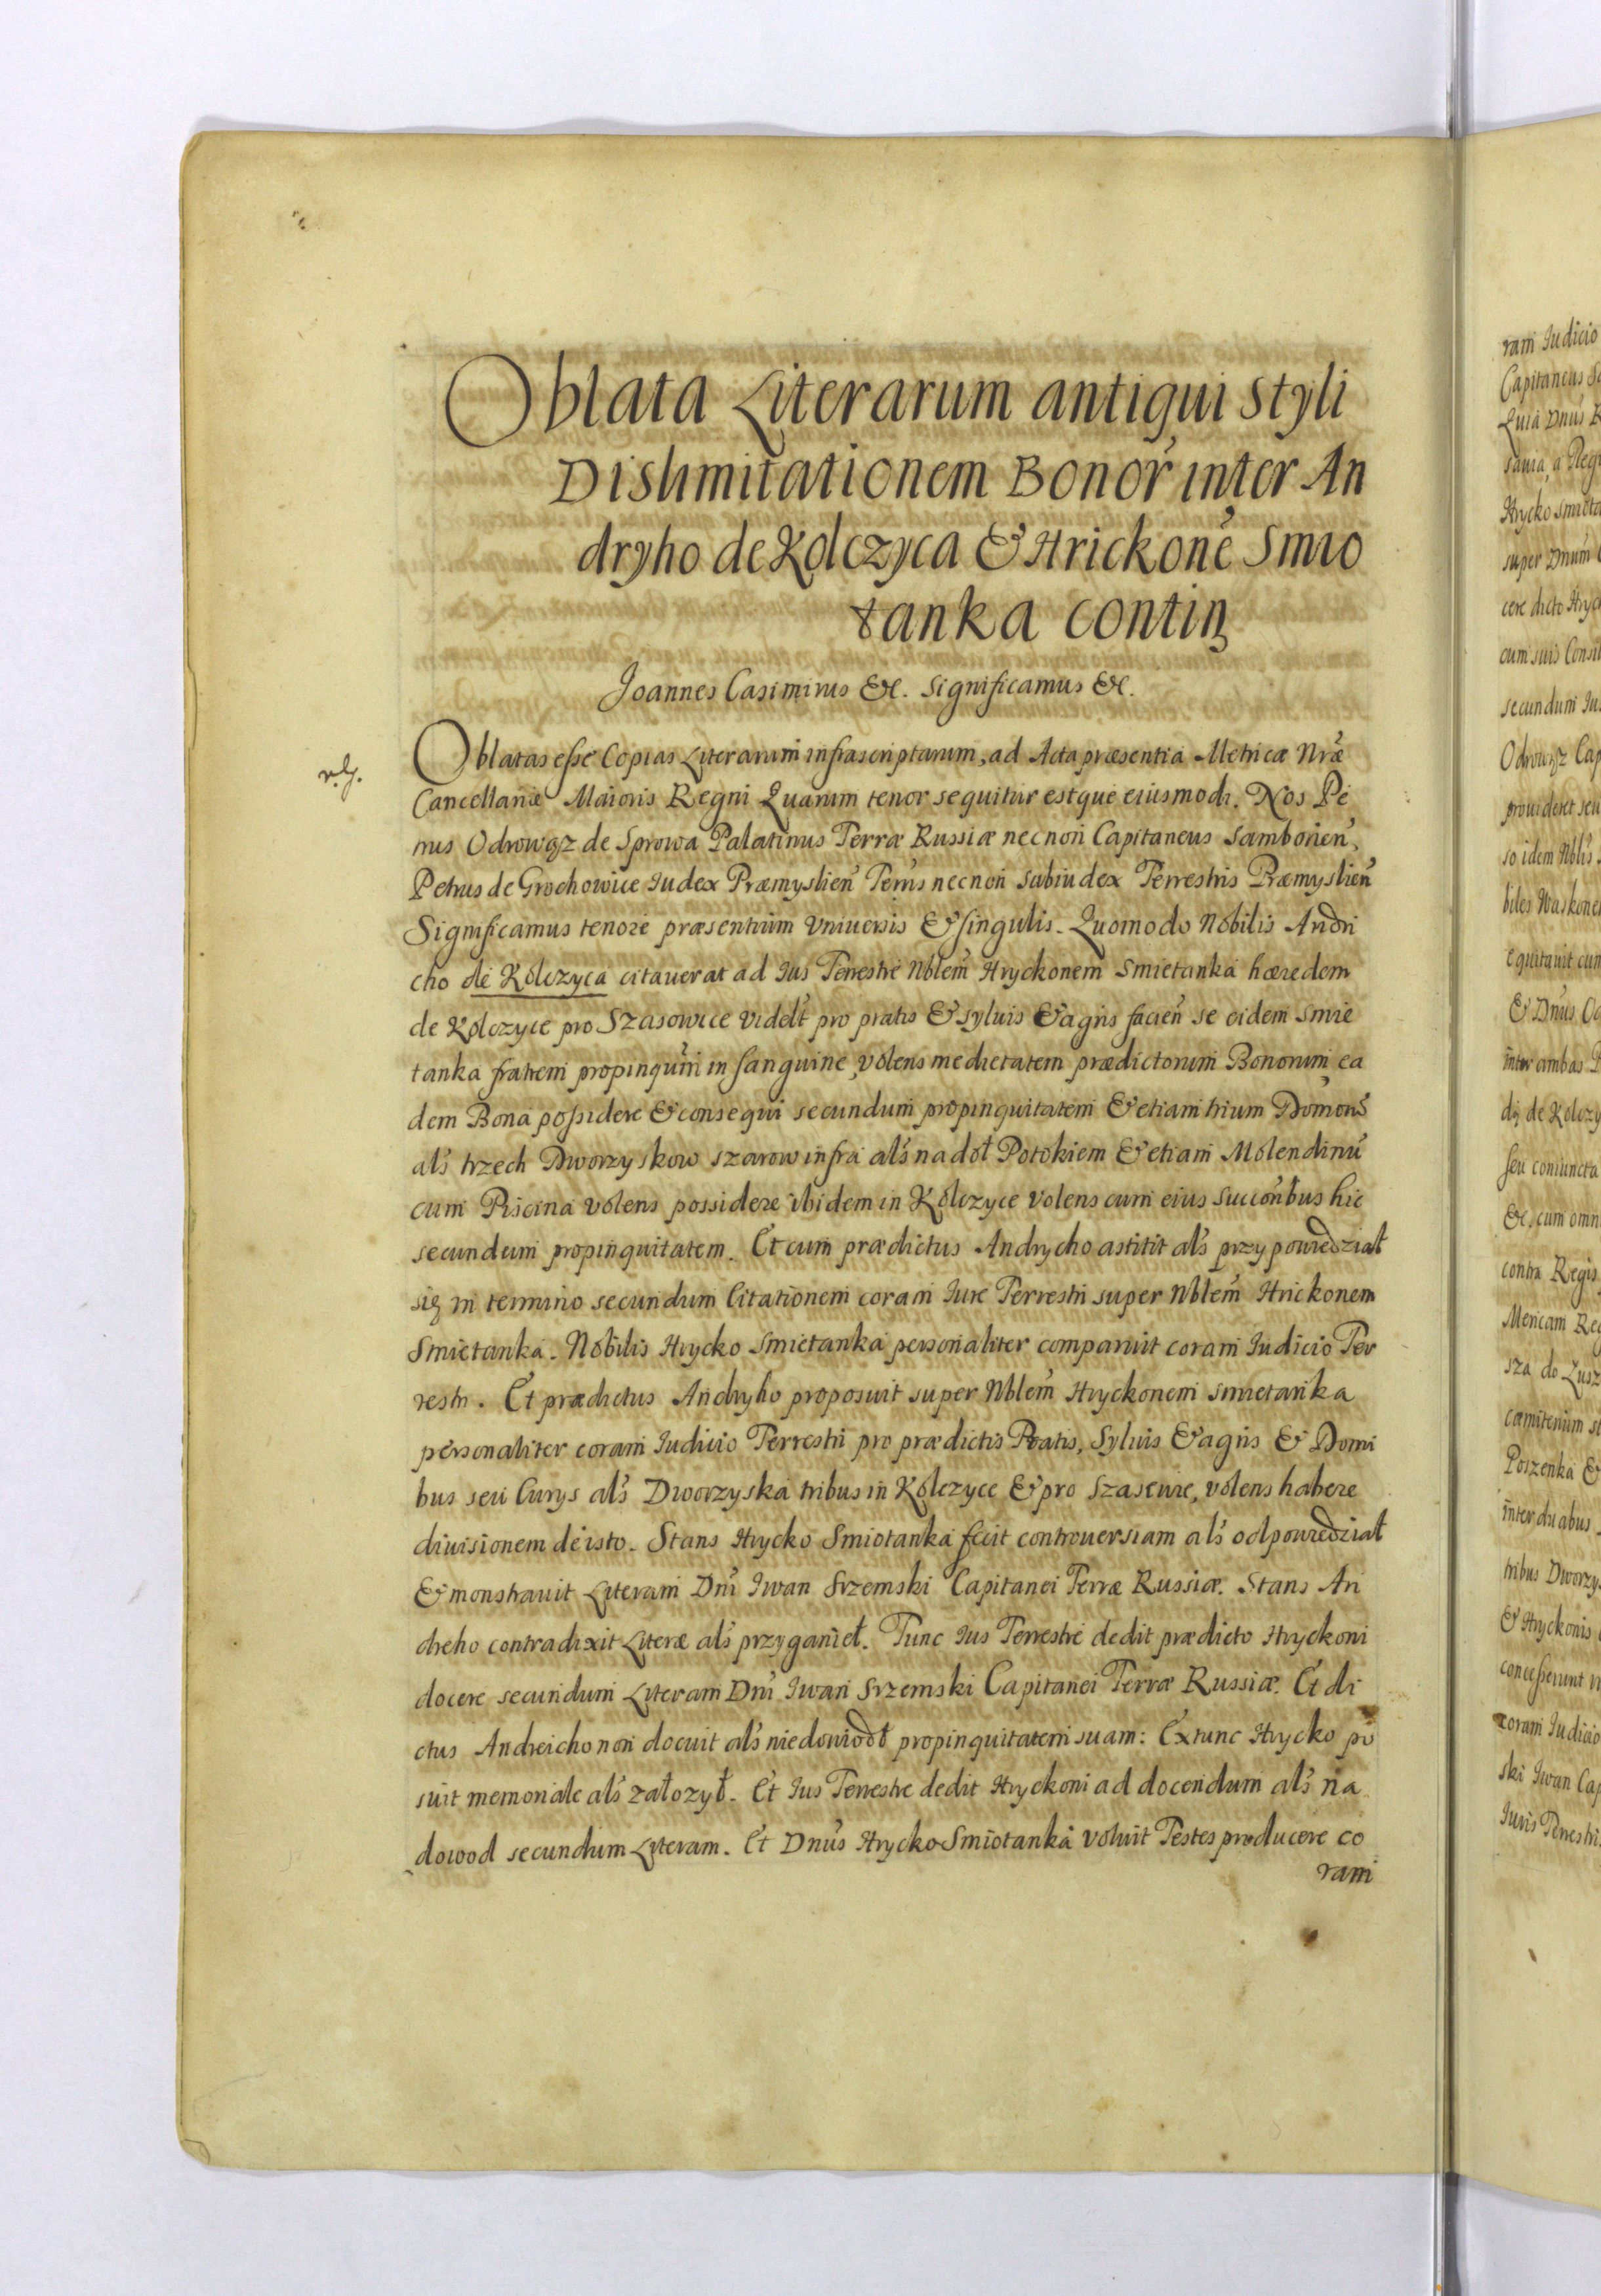 Oblata Literarum antiqui styli
Dislimitationem Bonor̃ inter An
dryho de Kolczyca & Hrickonẽ Smio
tanka contin
Joannes Casimirus &c. Significamus &c.
Oblatas esse Copias Literarum infrascriptarum, ad Acta præsentia Metricæ Nræ̃
Cancellariæ Maioris Regni Quarum tenor sequitur estque eiusmodi. Nos Pe
trus Odrowąz de Sprowa Palatinus Terræ Russiæ necnon Capitaneus Samborieñ,
Petrus de Grochowice Iudex Præmyslieñ Terris necnon Subiudex Terrestris Præmyslieñ
Significamus tenore præsentium Vniuersis & singulis. Quomodo Nobilis Andri
cho de Kolczyca citauerat ad Ius Terrestre Nblem̃ Hryckonem Smietanka hæredem
de Kolczyce pro Szasowice videlt̃ pro pratis & syluis & agris facieñ se eidem Smie
tanka fratrem propinquũm in sanguine, volens medietatem prædictorum Bonorum ea
dem Bona possidere & consequi secundum propinquitatem & etiam trium Domorũ
als̃ trzech Dworzyskow szarow infra als̃ na doł Potokiem & etiam Molendinũ
cum Piscina volens possidere ibidem in Kolczyce volens cum eius succõribus hic
secundum propinquitatem. Et cum prædictus Andrycho astitit als̃ przypowiedział
się in termino secundum Citationem coram Iure Terrestri super Nblem̃ Hrickonem
Smietanka. Nobilis Hrycko Smietanka personaliter comparuit coram Iudicio Ter
restri. Et prædictus Andryho proposuit super Nblem̃ Hryckonem Smietanka
personaliter coram Iudicio Terrestri pro prædictis Pratis, Syluis & agris & Domi
bus seu Curys als̃ Dworzyska tribus in Kolczyce & pro Szasewic, volens habere
diuisionem de isto. Stans Hrycko Smiotanka fecit controuersiam als̃ odpowiedział
& monstrauit Literam Dnĩ Iwan Srzemski Capitanei Terræ Russiæ. Stans An
dreho contradixit Literæ als̃ przyganieł. Tunc Ius Terrestre dedit prædicto Hryckoni
docere secundum Literam Dnĩ Iwan Srzemski Capitanei Terræ Russiæ. Et di
ctus Andreicho non docuit als̃ niedowiodł propinquitatem suam: Extunc Hrycko po
suit memoriale als̃ załozył. Et Ius Terrestre dedit Hryckoni ad docendum als̃ na
dowod secundum Literam. Et Dnũs Hrycko Smiotanka voluit Testes producere co
ram
ram Iudicio
Capitaneus
Quia Dnũs
Hrycko
super Dnũm
cum suis
secundum
Odrowąz Cap
so idem Nblis̃
equitauit cum
& Dnũs
inter ambas
de Kolczy
seu coniuncta
&c. cum omni
contra Regis
sza do
Poszenka &
inter duabus
tribus Dworzy
& Hryckonis
concesserunt
coram Iudicio
ski Iwan Cap
Iuris Terrestri